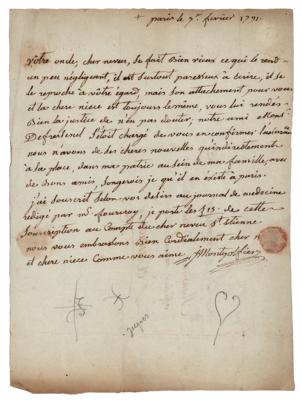 + paris le 7. fevrier 1791.
Vôtre oncle, cher neveu, se fait bien vieux ce qui le rend
un peu négligeant, il est surtout paresseux à écrire, il se
le reproche à votre égard, mais son attachement pour vous
et la chere niece est toujours le même, vous lui rendés
bien la justice de n'en pas douter, notre ami Mons.
s'etoit chargé de vous en confirmer
nous n'avons de ses cheres nouvelles qu'indirectement
à sa place, dans ma patrie au sein de ma famille, avec
de bons amis, songerois je qu'il en existe à paris.
j'ai souscrit selon vos desirs au journal de medecine
redigé par mr. fourcroy, je porte les £15. de cette
souscription au Compte du cher neveu St. Etienne
nous vous embrassons bien Cordialement cher
et chere niece Comme vous aime